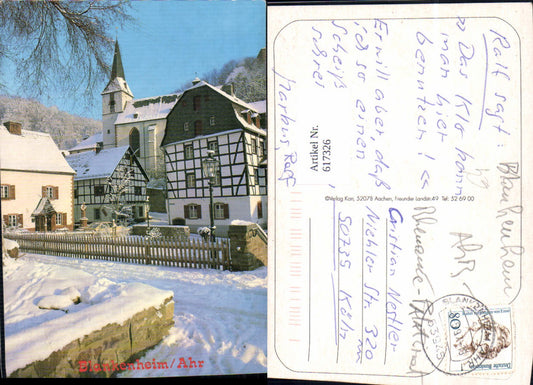 Blankenheim/Ahr
Ralf sagt:
"Das Klo kann
man hier
benutzen!"
Er will aber, daß
ich so einen
scheiß
schrei
Markus, Ralf
Artikel Nr.
617326
©Verlag Kan, 52078 Aachen, Freunder Landstr.49 Tel: 52 69 00
Cristian Nestler
Niehler Str. 320
50735 Köln
Blankenheim
Ahr
Deutsche Bundespost
80